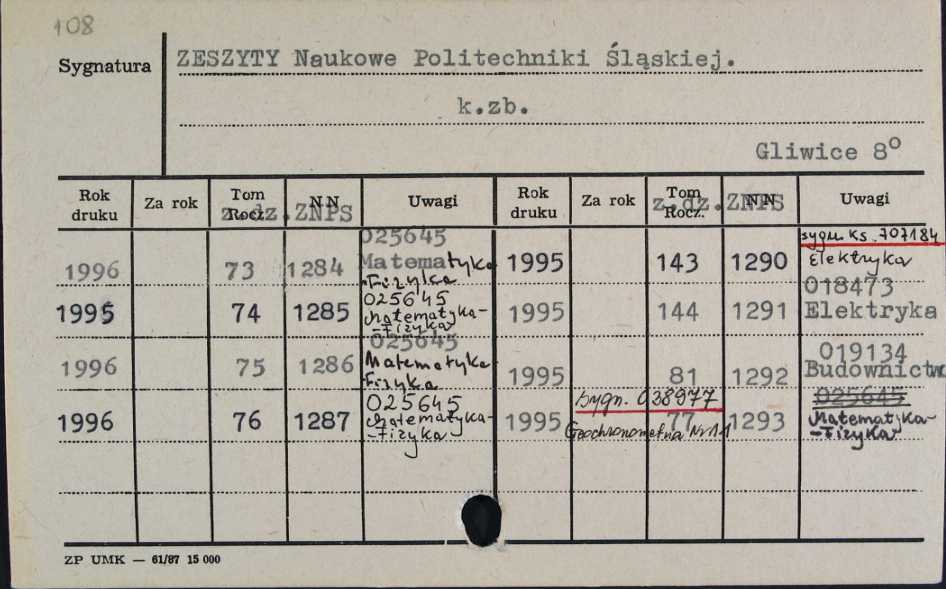 108
Sygnatura
ZESZYTY Naukowe Politechniki Śląskiej.
k.zb.
Gliwice 8°
Rok druku Za rok Tom Rocz. NN Uwagi Rok druku Za rok Tom Rocz. NN Uwagi
z.dz.ZNPS z.dz.ZNPS
1996 73 1284 025645 Matematyka Fizyka
1995 74 1285 025645 Matematyka--Fizyka
1996 75 1286 025645 Matematyka Fizyka
1996 76 1287 025645 Matematyka--Fizyka
1995 143 1290 sygn. Ks. 707184 Elektryka
1995 144 1291 018473 Elektryka
1995 81 1292 019134 Budownictwo
1995 sygn. 038977 77 Geochronometria Nr 11 1293 025645 Matematyka--Fizyka
ZP UMK — 61/87 15 000